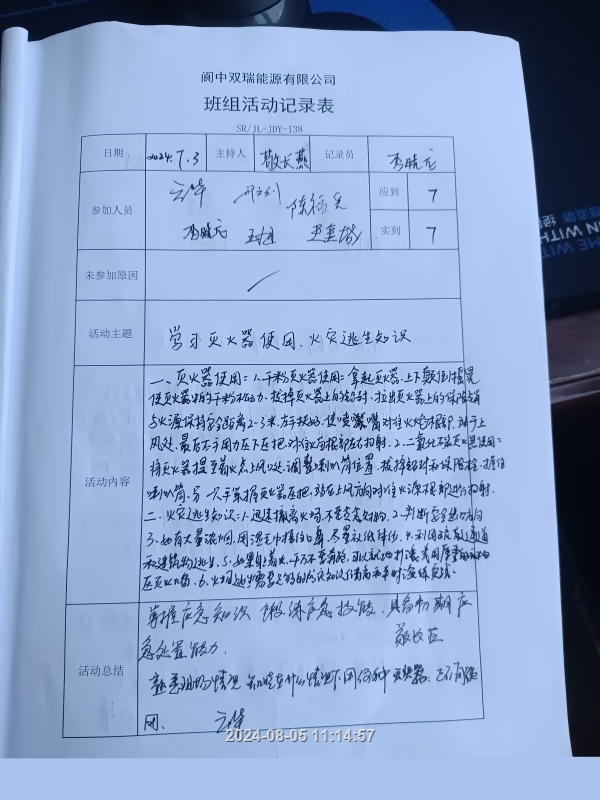 阆中双瑞能源有限公司
班组活动记录表
SR/JL-JDY-138
日期 2024.7.3 主持人 敬长燕 记录员 李晓元
参加人员 应到 7
李晓元 实到 7
未参加原因 /
活动主题 学习灭火器使用、火灾逃生知识
活动内容
一、灭火器使用:1、干粉灭火器使用:拿起灭火器,上下颠倒摇晃
使灭火器内干粉松动,拔掉灭火器上的铅封,拉出灭火器上的保险销
与火源保持安全距离2-3米,左手扶好,使喷嘴对住火焰根部,站于上
风处,最后右手用力压下压把,对住火焰根部左右扫射。2、二氧化碳灭火器使用:
将灭火器提至着火点上风处,调整喇叭筒位置,拔掉铅封和保险栓,握住
喇叭筒,另一只手紧握灭火器压把,站在上风方向对住火源根部进行扫射.
二、火灾逃生知识:1、迅速撤离火场,不要贪恋财物.2、判断安全逃生方向
3、如有大量浓烟,用湿毛巾捂住口鼻,尽量放低身体.4、利用疏散通道
和建筑物逃生.5、如果身上着火,千万不要奔跑,可以就地打滚
压灭火苗.6、火场逃生需要
活动总结
掌握应急知识 锻炼应急技能,具备初期应
急处置能力. 敬长燕
熟悉现场情况 知晓在什么情况下用何种灭火器,
用.
2024-08-05 11:14:57